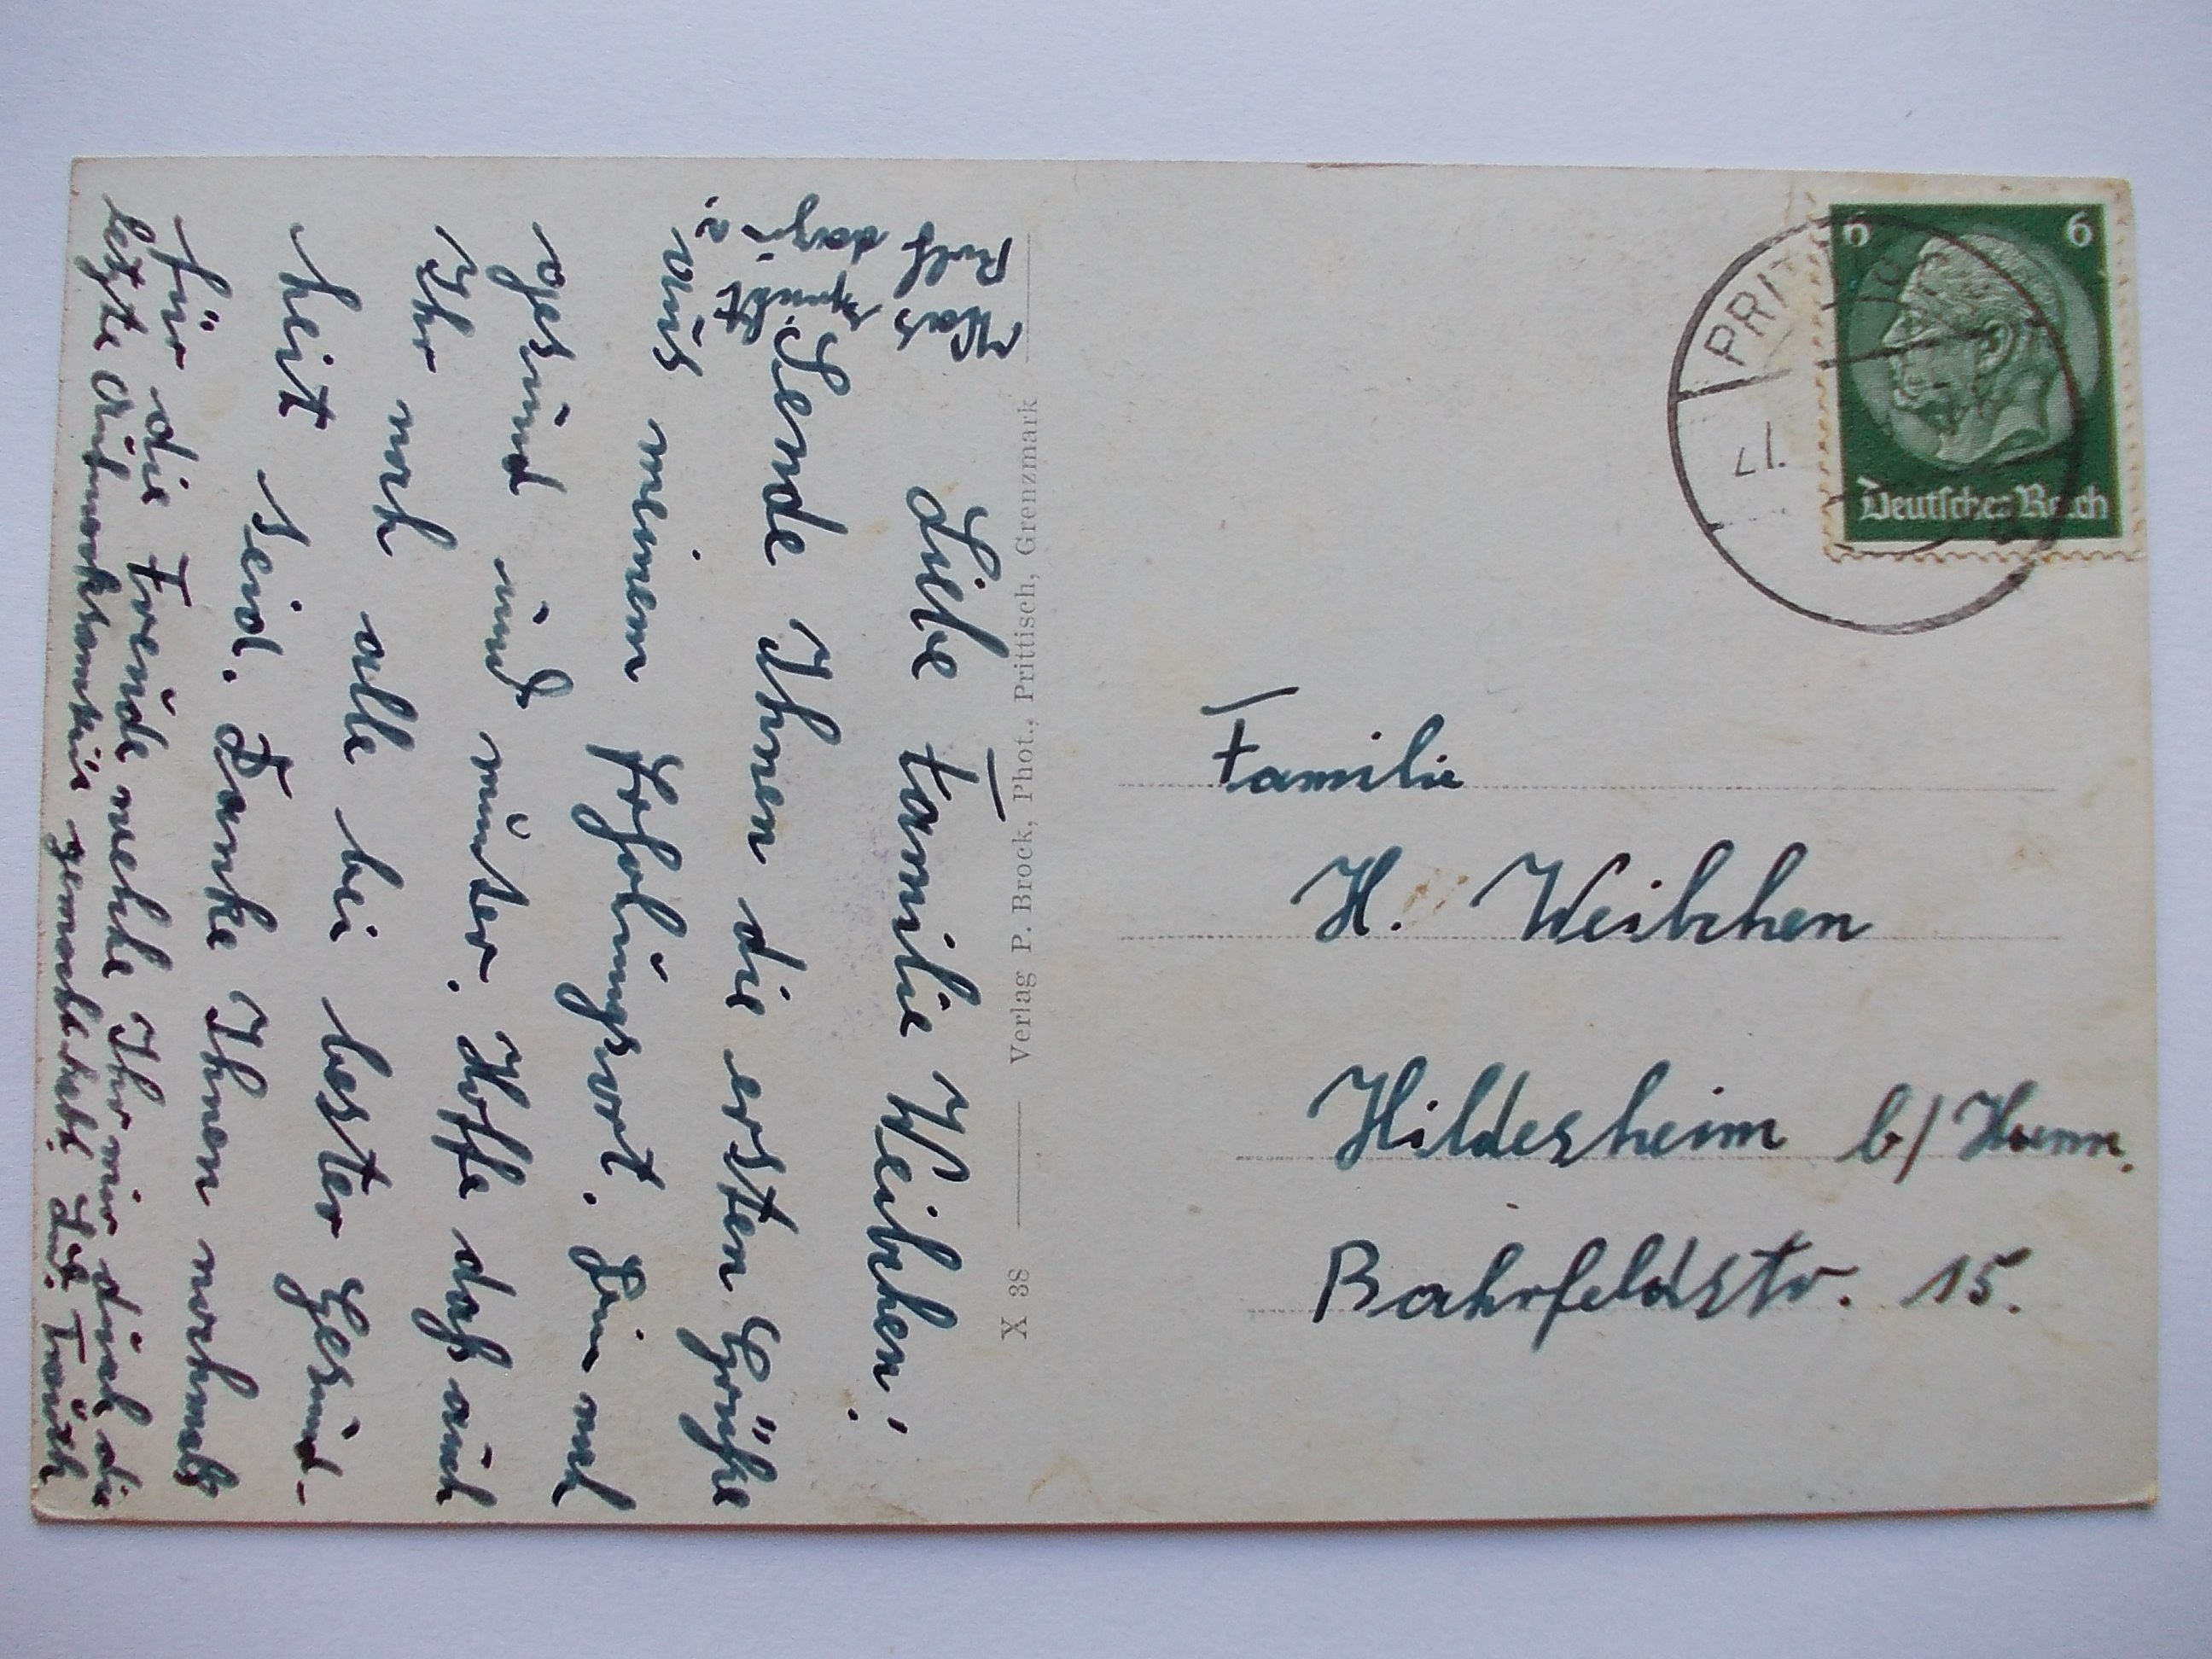 Liebe Familie Weibchen!
Sende Ihnen die ersten Grüße
aus meinem Erholungsort. Bin noch
gesund und munter. Hoffe daß auch
Ihr noch alle bei bester Gesund-
heit seid. Danke Ihnen nochmals
für die Freude welche Ihr mir durch die
letzte Aufmerksamkeit gemacht habt.
Was
spricht
Rolf
dazu
?
X 38 Verlag P. Brock, Phot., Prittisch, Grenzmark
PRIT
6 6
Deutsches Reich
Familie
H. Weibchen
Hildesheim b/ Hann.
Bahrfeldstr. 15.